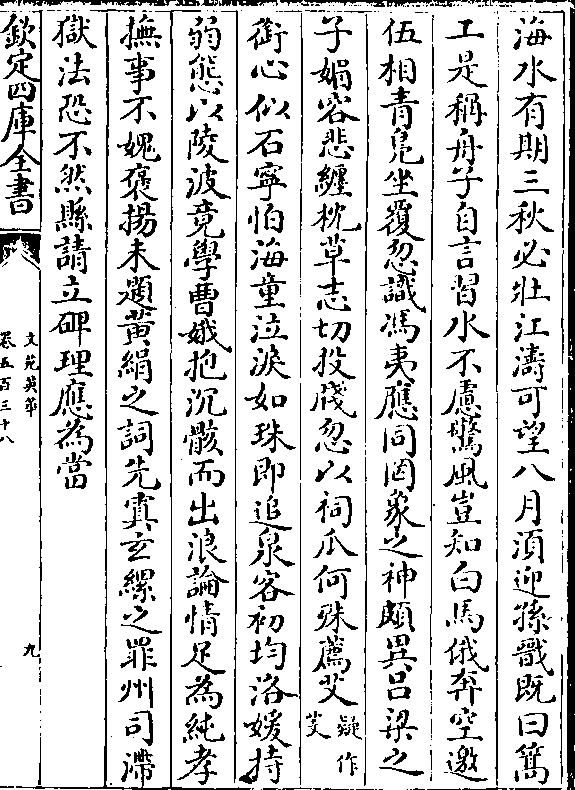 海水有期三秋必壯江濤可望八月湏迎孫戩既曰篙
工是稱舟子自言習水不慮驚風豈知白馬俄奔空邀
伍相青鳧坐覆忽識馮夷應同罔象之神頗異吕梁之
子娟容悲纒枕草志切投牋忽以祠瓜何殊薦艾疑作芰
銜心似石寧怕海童泣淚如珠即追泉客初均洛媛持
弱態以陵波竟學曹娥抱沉骸而出浪論情足為純孝
撫事不媿褒揚未題黄絹之詞先寘玄縲之罪州司滯
獄法恐不然縣請立碑理應為當
欽定四庫全書
文苑英華
卷五百三十八
九